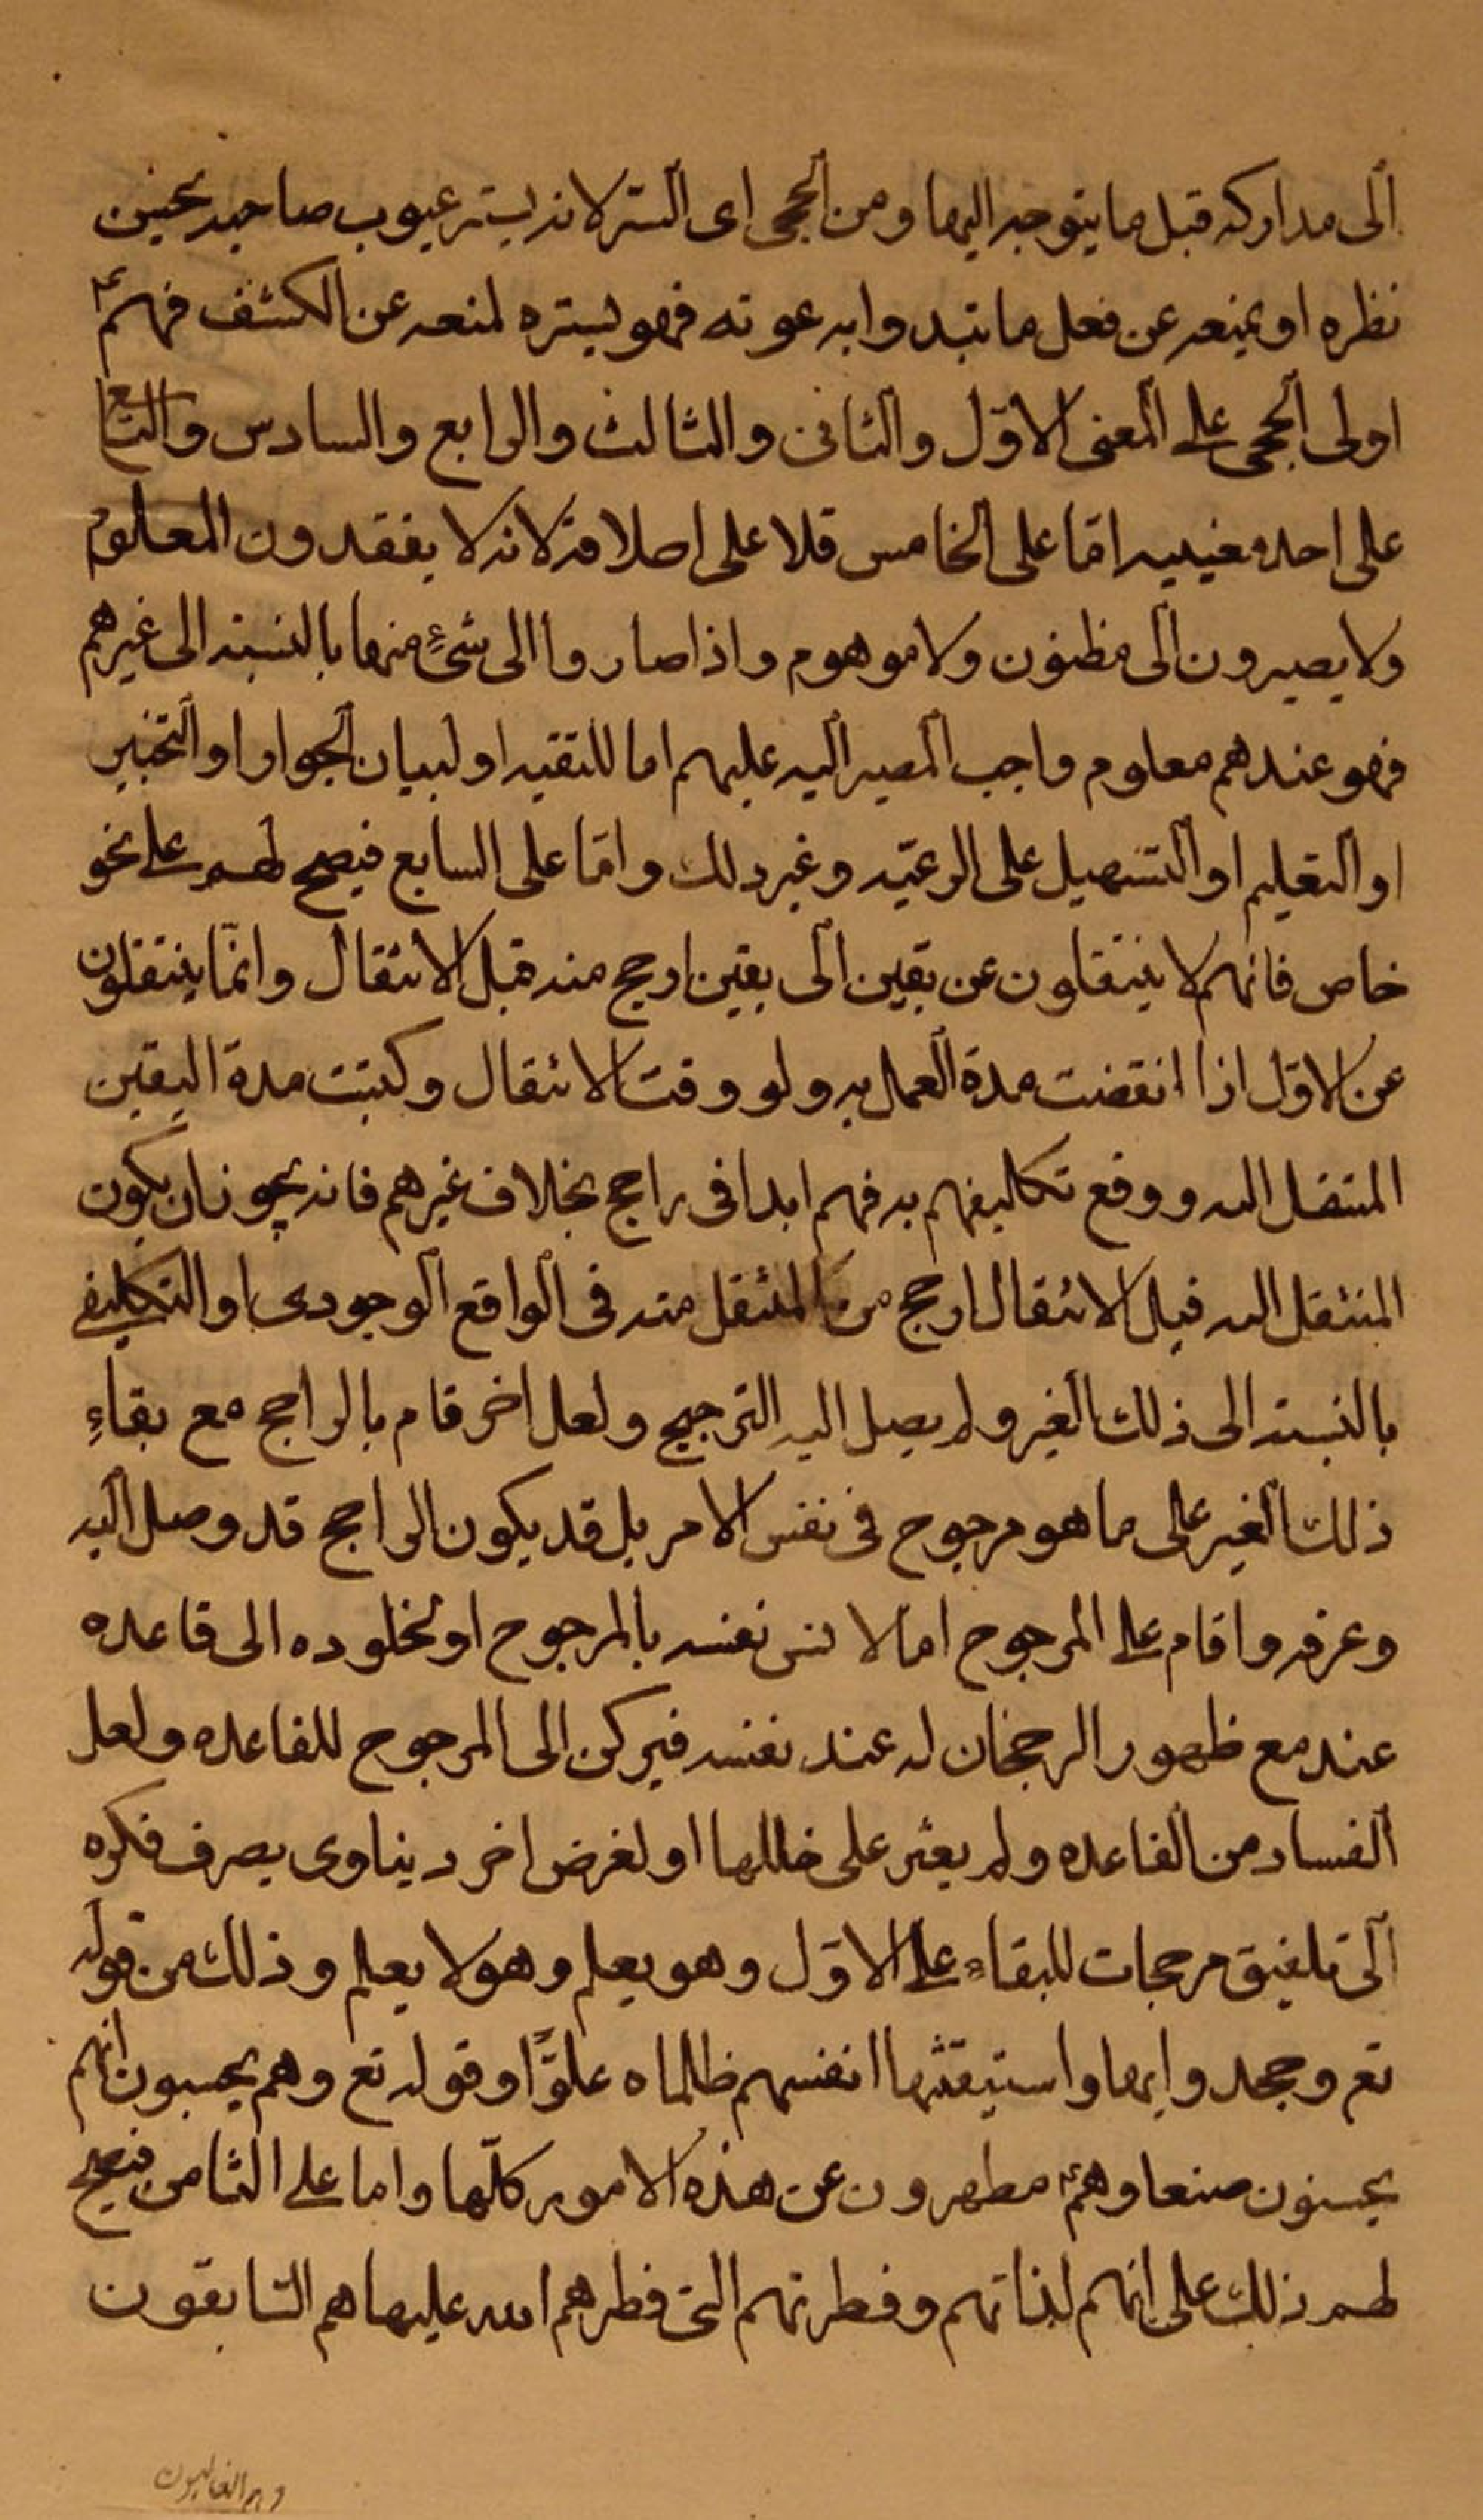 الى مداركه قبل ما يتوجه اليها ومن الحجى اى الستر لانه يستر عيوب صاحبه بحين
نظره او يمنعه عن فعل ما تبدوا به عوته فهو يستره لمنعه عن الكشف فهم ع
اولى الحجى على المعنى الاوّل والثانى والثالث والرابع والسادس والتاسع
على احد معنييه امّا على الخامس فلا على اطلاقه لانه لا يفقدون المعلوم
ولا يصيرون الى مظنون ولا موهوم واذا صاروا الى شئٍ منها بالنسبة الى غيرهم
فهو عندهم معلوم واجب المصير اليه عليهم اما للتقيه او لبيان الجواز او التخيير
او التعليم او التسهيل على الرعيّه وغير ذلك وامّا على السابع فيصح لهم على نحو
خاص فانهم لا ينتقلون عن يقين الى يقين ارجح منه قبل الانتقال وانّما ينتقلون
عن الاوّل اذا انقضت مدة العمل به ولو وقت الانتقال وكتبت مدة اليقين
المنتقل اليه ووقع تكاليفهم به فهم ابدا فى راجح بخلاف غيرهم فانه يجوز ان يكون
المنتقل اليه قبل الانتقال ارجح من المنتقل منه فى الواقع الوجودى او التكليفى
بالنسبة الى ذلك الغير ولم يصل اليه الترجيح ولعل اخر قام بالراجح مع بقاءِ
ذلك الغير على ما هو مرجوح فى نفس الامر بل قد يكون الراجح قد وصل اليه
وعرفه واقام على المرجوح اما لانس نفسه بالمرجوح او لخلوده الى قاعده
عنده مع ظهور الرجحان له عند نفسه فيركن الى المرجوح للقاعده ولعل
الفساد من القاعده ولم يعثر على خللها او لغرض اخر دنياوى يصرف فكره
الى تلفيق مرجحات للبقاء على الاوّل وهو يعلم وهو لا يعلم وذلك من قوله
تع وجحدوا بها واستيقنتها انفسهم ظلما ه علوّاً وقوله تع وهم يحسبون انهم
يحسنون صنعا وهم ع مطهرون عن هذه الامور كلّها واما على الثامن فيصح
لهم ذلك على انهم لذاتهم وفطرتهم التى فطرهم الله عليها هم السّابقون
وهم الغالبون